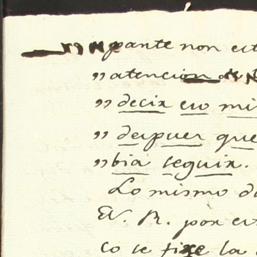 pante non est
" atencion
" decir ero mi
" despues que
" bia seguir.
Lo mismo d
E. R. por e
co se fixe la